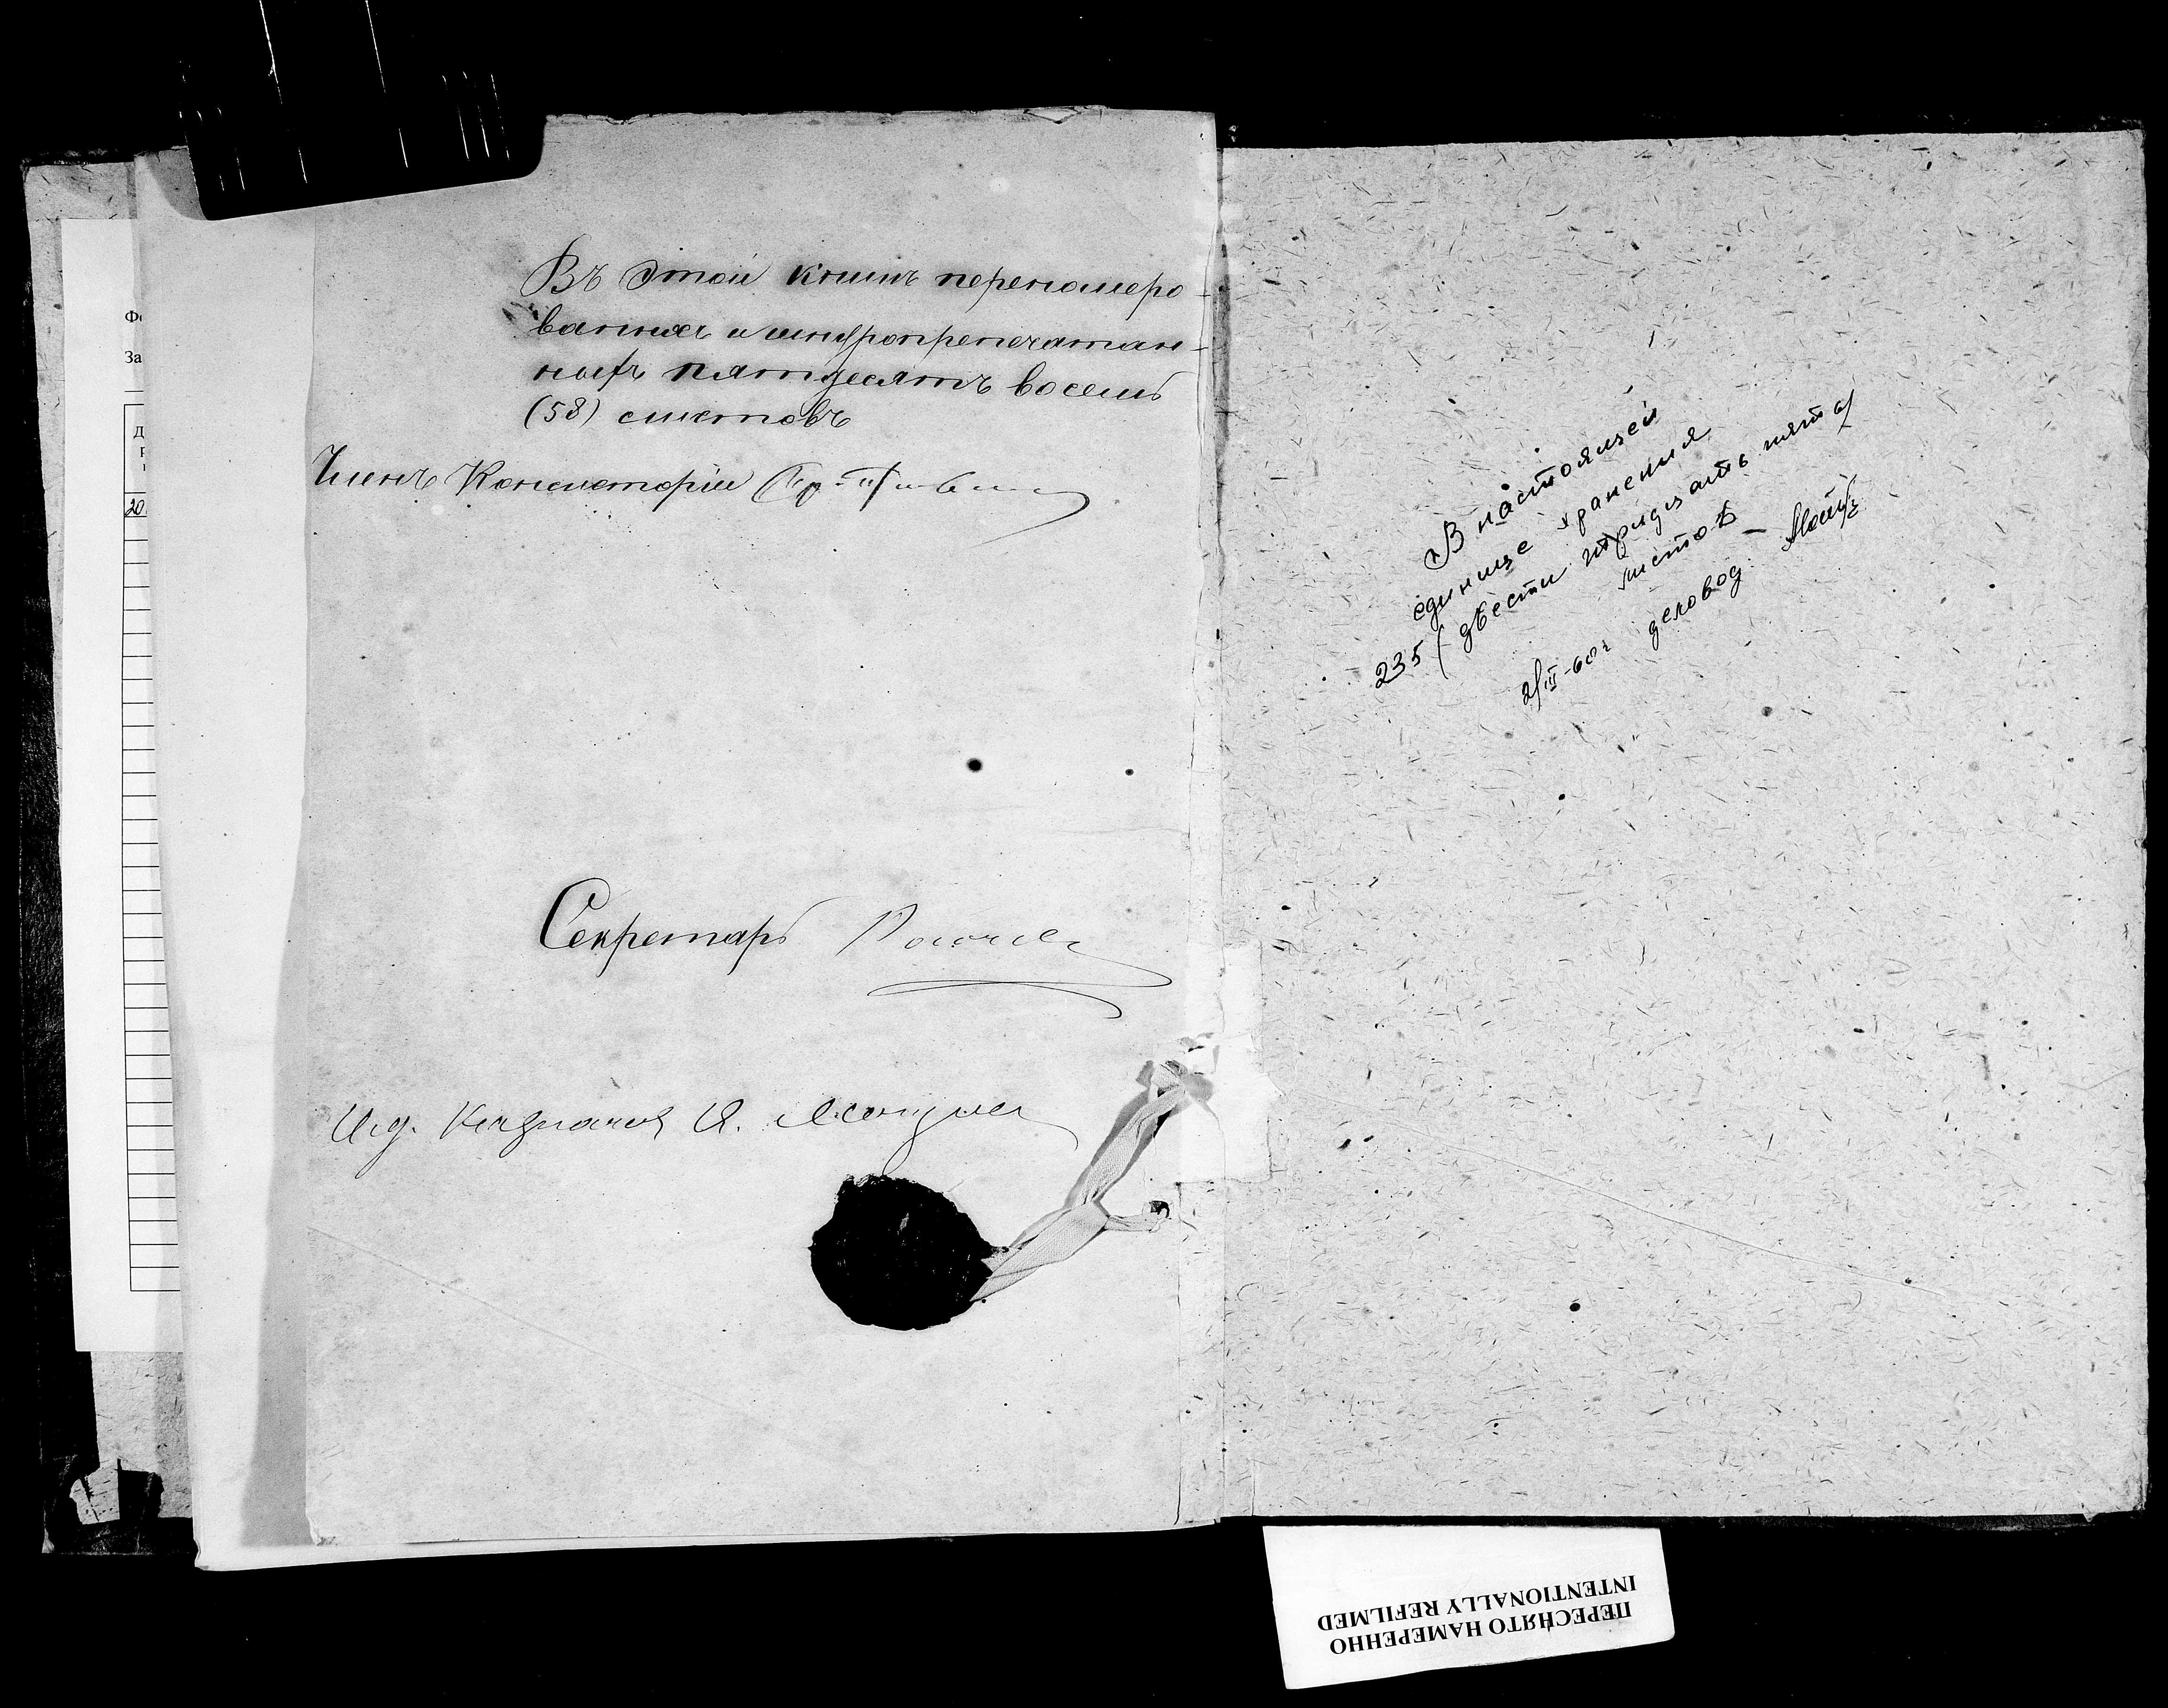 Въ этой книгѣ перенумеро-
ванныхъ и шнуропрепечатан-
ныхъ пятьдесятъ восемь
(58) листовъ
Членъ Консисторіи
Секретарь
И.д. Казначея И.
В настоящей
единице хранения
235 (двести тридцать пять)
листов —
2/III-60г деловод
Фо
За
Д
20
ПЕРЕСНЯТО НАМЕРЕННО
INTENTIONALLY REFILMED